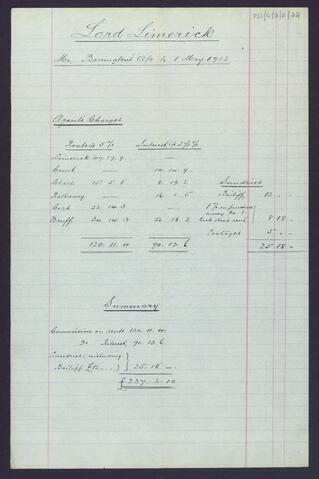 P51/C/2/2/22
Lord Limerick
Mr. Barrington's A/c to 1 May 1912
Agents Charges
Rents @ 5% Interest @ 2½% Sundries
Limerick 47.17.9 —
— 10.14.9
Clare 15.5.1 8.19.2
Bailiff, 12 - -
Rathanny — 18.1.5
1% on purchase
Cork 22.14.3 —
money No. 1
Bruff 34.14.3 52.18.2
8 18 -
Postages 5 - -
120.11.4 90.13.6 25 18 -
Summary
Commission on rents 120.11.4.
Do Interest, 90.13.6
Sundries, including
Bailiff £12.-.- } 25.18 -
£237.2.10